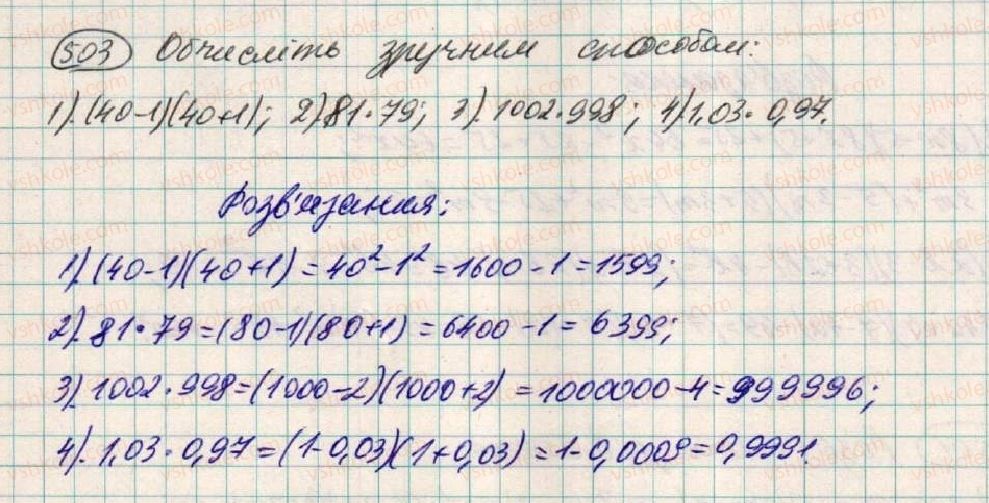 503 Обчисліть зручним способом:
1). (40-1)(40+1); 2) 81·79; 3). 1002·998; 4) 1,03·0,97.
Розв'язання:
1). (40-1)(40+1) = 40²-1² = 1600-1 = 1599;
2). 81·79 = (80-1)(80+1) = 6400-1 = 6399;
3). 1002·998 = (1000-2)(1000+2) = 1000000-4 = 999996;
4). 1,03·0,97 = (1-0,03)(1+0,03) = 1-0,0009 = 0,9991.